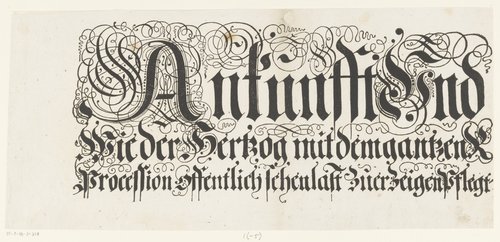 Ankunfft Und
Wie der Hertzog mit dem gantzen R
Procession offentlich sehen last Zuerzeigen Pflegt
1(-5)